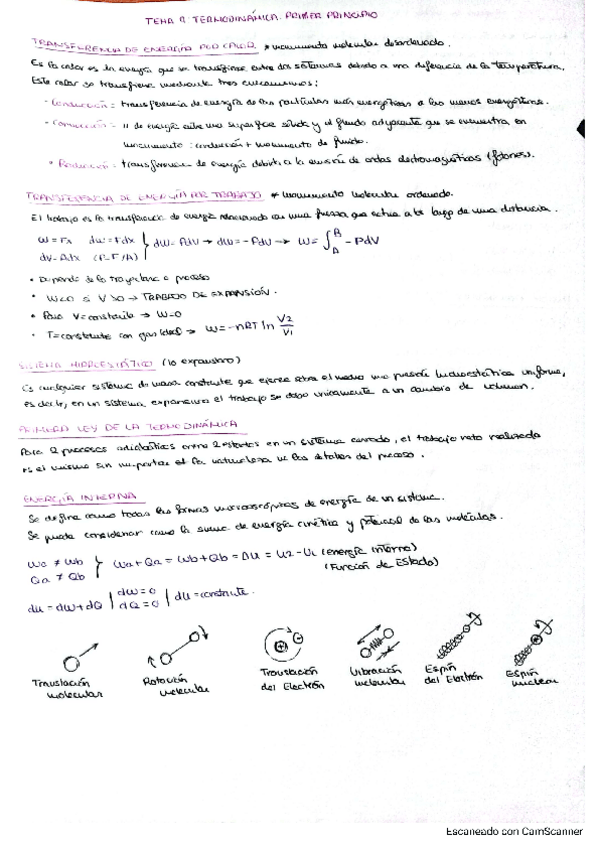 TEMA 9. TERMODINÁMICA. PRIMER PRINCIPIO
TRANSFERENCIA DE ENERGÍA POR CALOR * movimiento molecular desordenado.
El calor es la energía que se transfiere entre dos sistemas debido a una diferencia de la temperatura.
Este calor se transfiere mediante tres mecanismos:
- Conducción: transferencia de energía de las partículas más energéticas a las menos energéticas.
- Convección: " de energía entre una superficie sólida y el fluido adyacente que se encuentra en
movimiento: conducción + movimiento de fluido.
- Radiación: transferencia de energía debida a la emisión de ondas electromagnéticas (fotones).
TRANSFERENCIA DE ENERGÍA POR TRABAJO * movimiento molecular ordenado.
El trabajo es la transferencia de energía relacionado con una fuerza que actúa a lo largo de una distancia.
W = Fx dW = Fdx } dW = PdV → dW = -PdV → W = ∫ᴬᴮ - PdV
dV = Adx (P = F/A)
• Depende de la trayectoria o proceso
• W<0 si V>0 → TRABAJO DE EXPANSIÓN.
• Para V=constante → W=0
• T=constante con gas ideal → W = -nRT ln V2/V1
SISTEMA HIDROSTÁTICO (lo expansivo)
Es cualquier sistema de masa constante que ejerce sobre el medio una presión hidrostática uniforme,
es decir, en un sistema expansivo el trabajo se debe únicamente a un cambio de volumen.
PRIMERA LEY DE LA TERMODINÁMICA
Para 2 procesos adiabáticos entre 2 estados en un sistema cerrado, el trabajo neto realizado
es el mismo sin importar el la naturaleza ni los detalles del proceso.
ENERGÍA INTERNA
Se define como todas las formas microscópicas de energía de un sistema.
Se puede considerar como la suma de energía cinética y potencial de las moléculas.
Wa ≠ Wb } Wa + Qa = Wb + Qb = ΔU = U2 - U1 (energía interna)
Qa ≠ Qb (Función de Estado)
dU = dW + dQ | dW = 0 | dU = constante.
dQ = 0
Translación molecular
Rotación molecular
Translación del Electrón
Vibración molecular
Espín del Electrón
Espín nuclear
Escaneado con CamScanner